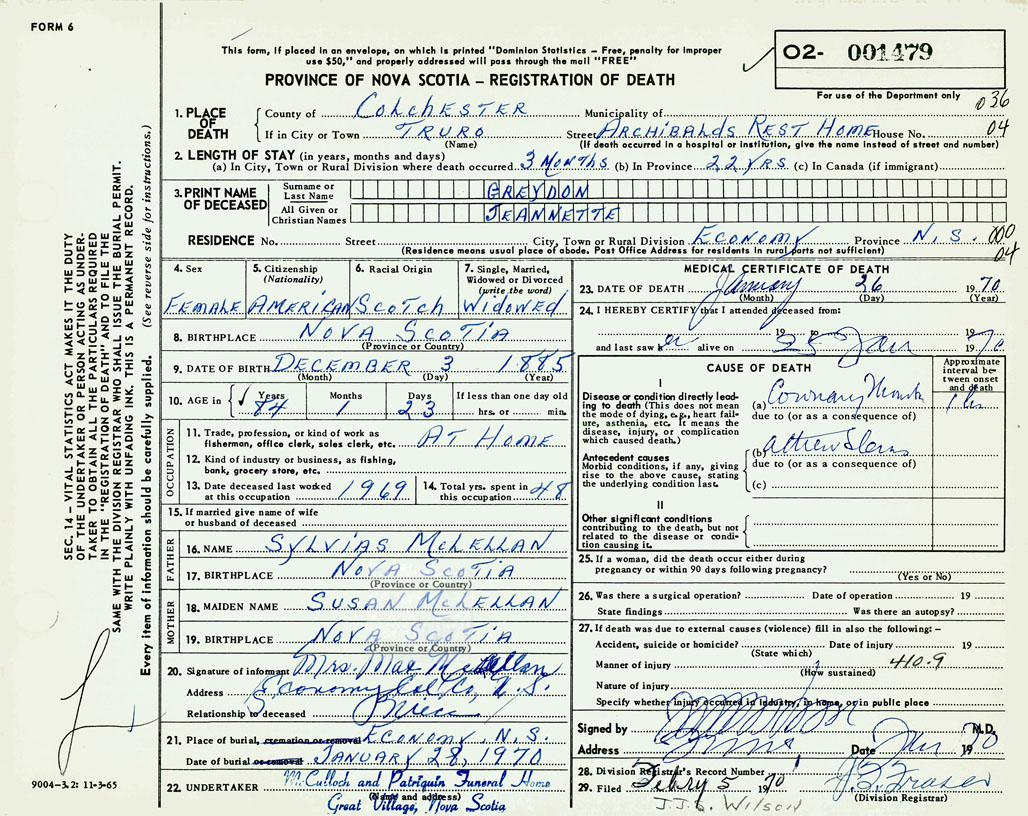 FORM 6
This form, if placed in an envelope, on which is printed "Dominion Statistics — Free, penalty for improper
use $50," and properly addressed will pass through the mail "FREE"
O2- 001479
PROVINCE OF NOVA SCOTIA — REGISTRATION OF DEATH
For use of the Department only
036
1. PLACE OF DEATH
County of COLCHESTER Municipality of
If in City or Town TRURO Street ARCHIBALDS REST HOME House No. 04
(Name) (If death occurred in a hospital or institution, give the name instead of street and number)
2. LENGTH OF STAY (in years, months and days)
(a) In City, Town or Rural Division where death occurred 3 MONTHS (b) In Province 22 YRS (c) In Canada (if immigrant)
3. PRINT NAME OF DECEASED
Surname or Last Name GREYDON
All Given or Christian Names JEANNETTE
RESIDENCE No. Street City, Town or Rural Division ECONOMY Province N.S. 000
(Residence means usual place of abode. Post Office Address for residents in rural parts not sufficient) 04
4. Sex FEMALE
5. Citizenship (Nationality) AMERICAN
6. Racial Origin SCOTCH
7. Single, Married, Widowed or Divorced (write the word) WIDOWED
8. BIRTHPLACE NOVA SCOTIA
(Province or Country)
9. DATE OF BIRTH DECEMBER 3 1885
(Month) (Day) (Year)
10. AGE in Years Months Days If less than one day old
84 1 23 hrs. or min.
OCCUPATION
11. Trade, profession, or kind of work as fisherman, office clerk, sales clerk, etc. AT HOME
12. Kind of industry or business, as fishing, bank, grocery store, etc.
13. Date deceased last worked at this occupation 1969
14. Total yrs. spent in this occupation 48
15. If married give name of wife or husband of deceased
FATHER
16. NAME SYLVIAS McLELLAN
17. BIRTHPLACE NOVA SCOTIA
(Province or Country)
MOTHER
18. MAIDEN NAME SUSAN McLELLAN
19. BIRTHPLACE NOVA SCOTIA
(Province or Country)
20. Signature of informant Mrs. Mae McLellan
Address Economy Col. Co, N.S.
Relationship to deceased
21. Place of burial, cremation or removal ECONOMY, N.S.
Date of burial or removal JANUARY 28, 1970
22. UNDERTAKER McCulloch and Patriquin Funeral Home
(Name and address)
Great Village, Nova Scotia
MEDICAL CERTIFICATE OF DEATH
23. DATE OF DEATH January 26 1970
(Month) (Day) (Year)
24. I HEREBY CERTIFY that I attended deceased from:
19 to 19
and last saw h er alive on 25 Jan 1970
CAUSE OF DEATH
Approximate interval between onset and death
I
Disease or condition directly leading to death (This does not mean the mode of dying, e.g., heart failure, asthenia, etc. It means the disease, injury, or complication which caused death.)
(a) Coronary 1 hr
due to (or as a consequence of)
Antecedent causes
Morbid conditions, if any, giving rise to the above cause, stating the underlying condition last.
(b)
due to (or as a consequence of)
(c)
II
Other significant conditions
contributing to the death, but not related to the disease or condition causing it.
25. If a woman, did the death occur either during pregnancy or within 90 days following pregnancy?
(Yes or No)
26. Was there a surgical operation? Date of operation 19
State findings Was there an autopsy?
27. If death was due to external causes (violence) fill in also the following: —
Accident, suicide or homicide? Date of injury 19
(State which)
Manner of injury 410.9
(How sustained)
Nature of injury
Specify whether injury occurred in industry, in home, or in public place
Signed by M.D.
Address Date Jan 1970
28. Division Registrar's Record Number
29. Filed Febry 5 1970 J.S. Fraser
(Division Registrar)
J.J.S. WILSON
SEC. 14 — VITAL STATISTICS ACT MAKES IT THE DUTY
OF THE UNDERTAKER OR PERSON ACTING AS UNDER-
TAKER TO OBTAIN ALL THE PARTICULARS REQUIRED
IN THE "REGISTRATION OF DEATH" AND TO FILE THE
SAME WITH THE DIVISION REGISTRAR WHO SHALL ISSUE THE BURIAL PERMIT.
WRITE PLAINLY WITH UNFADING INK. THIS IS A PERMANENT RECORD.
Every item of information should be carefully supplied. (See reverse side for instructions.)
9004—3.2: 11-3-65